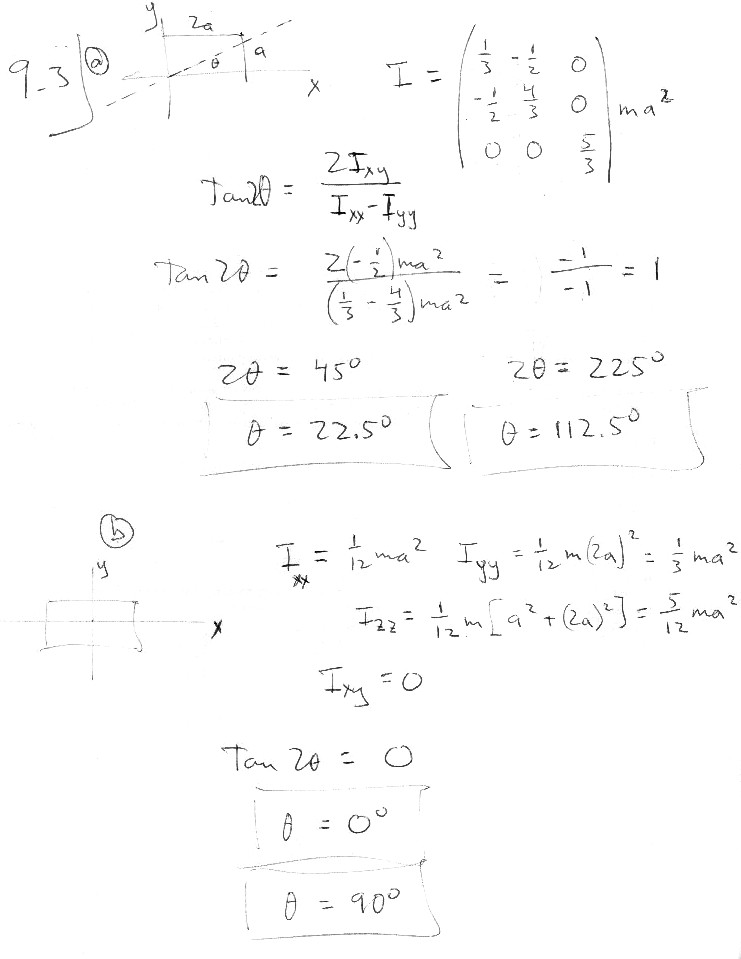 9.3 (a) y 2a
θ a x
I = ( 1/3 -1/2 0
-1/2 4/3 0
0 0 5/3 ) ma²
Tan2θ = 2Ixy / (Ixx - Iyy)
Tan 2θ = 2(-1/2)ma² / (1/3 - 4/3)ma² = -1/-1 = 1
2θ = 45° 2θ = 225°
θ = 22.5° θ = 112.5°
(b)
y x
Ixx = 1/12 ma² Iyy = 1/12 m(2a)² = 1/3 ma²
Izz = 1/12 m[a² + (2a)²] = 5/12 ma²
Ixy = 0
Tan 2θ = 0
θ = 0°
θ = 90°